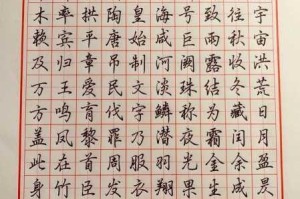 宇宙洪荒日月盈昃
往秋收冬藏闰余成
致雨露结为霜金生
号巨阙珠称夜光果
海咸河淡鳞潜羽翔
皇始制文字乃服衣
陶唐吊民伐罪周发
拱平章爱育黎首臣
率宾归王鸣凤在竹
木赖及万方盖此身